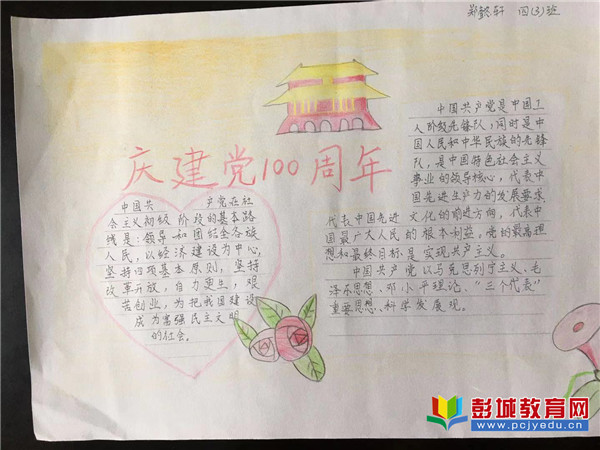 郑懿轩 四(3)班
庆建党100周年
中国共 产党在社
会主义初级阶段的基本路
线是:领导和团结全国各族
人民,以经济建设为中心,
坚持四项基本原则,坚持
改革开放,自力更生,艰
苦创业,为把我国建设
成为富强民主文明
的社会。
中国共产党是中国工
人阶级先锋队,同时是中
国人民和中华民族的先锋
队,是中国特色社会主义
事业的领导核心,代表中
国先进生产力的发展要求,
代表中国先进文化的前进方向,代表中
国最广大人民的根本利益,党的最高理
想和最终目标是实现共产主义。
中国共产党以马克思列宁主义、毛
泽东思想、邓小平理论、“三个代表”
重要思想、科学发展观。
彭城教育网
www.pcjyedu.cn